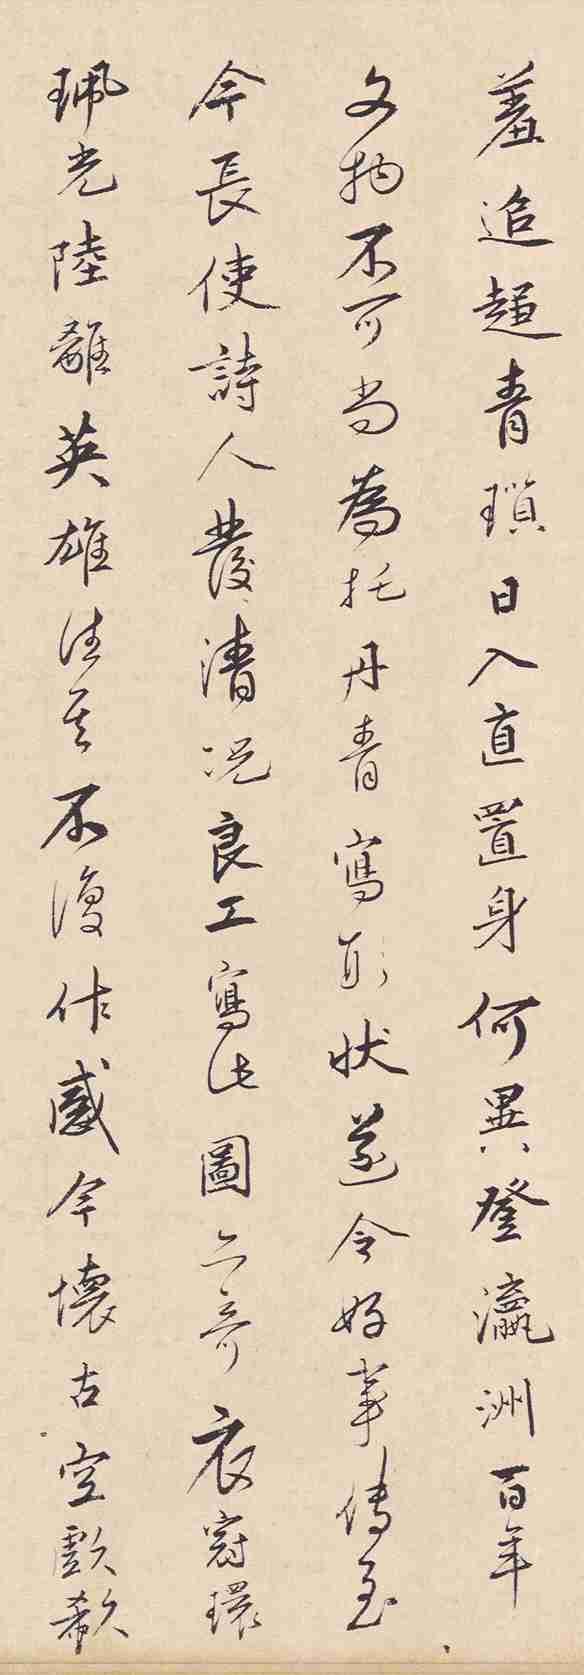 羞追趨青瑣日入直置身何異登瀛洲百年
文物不可尚為托丹青寫形狀遂令好事傳至
今長使詩人發清況良工寫此圖亦奇衣冠環
珮光陸離英雄往矣不復作感今懷古空歔欷